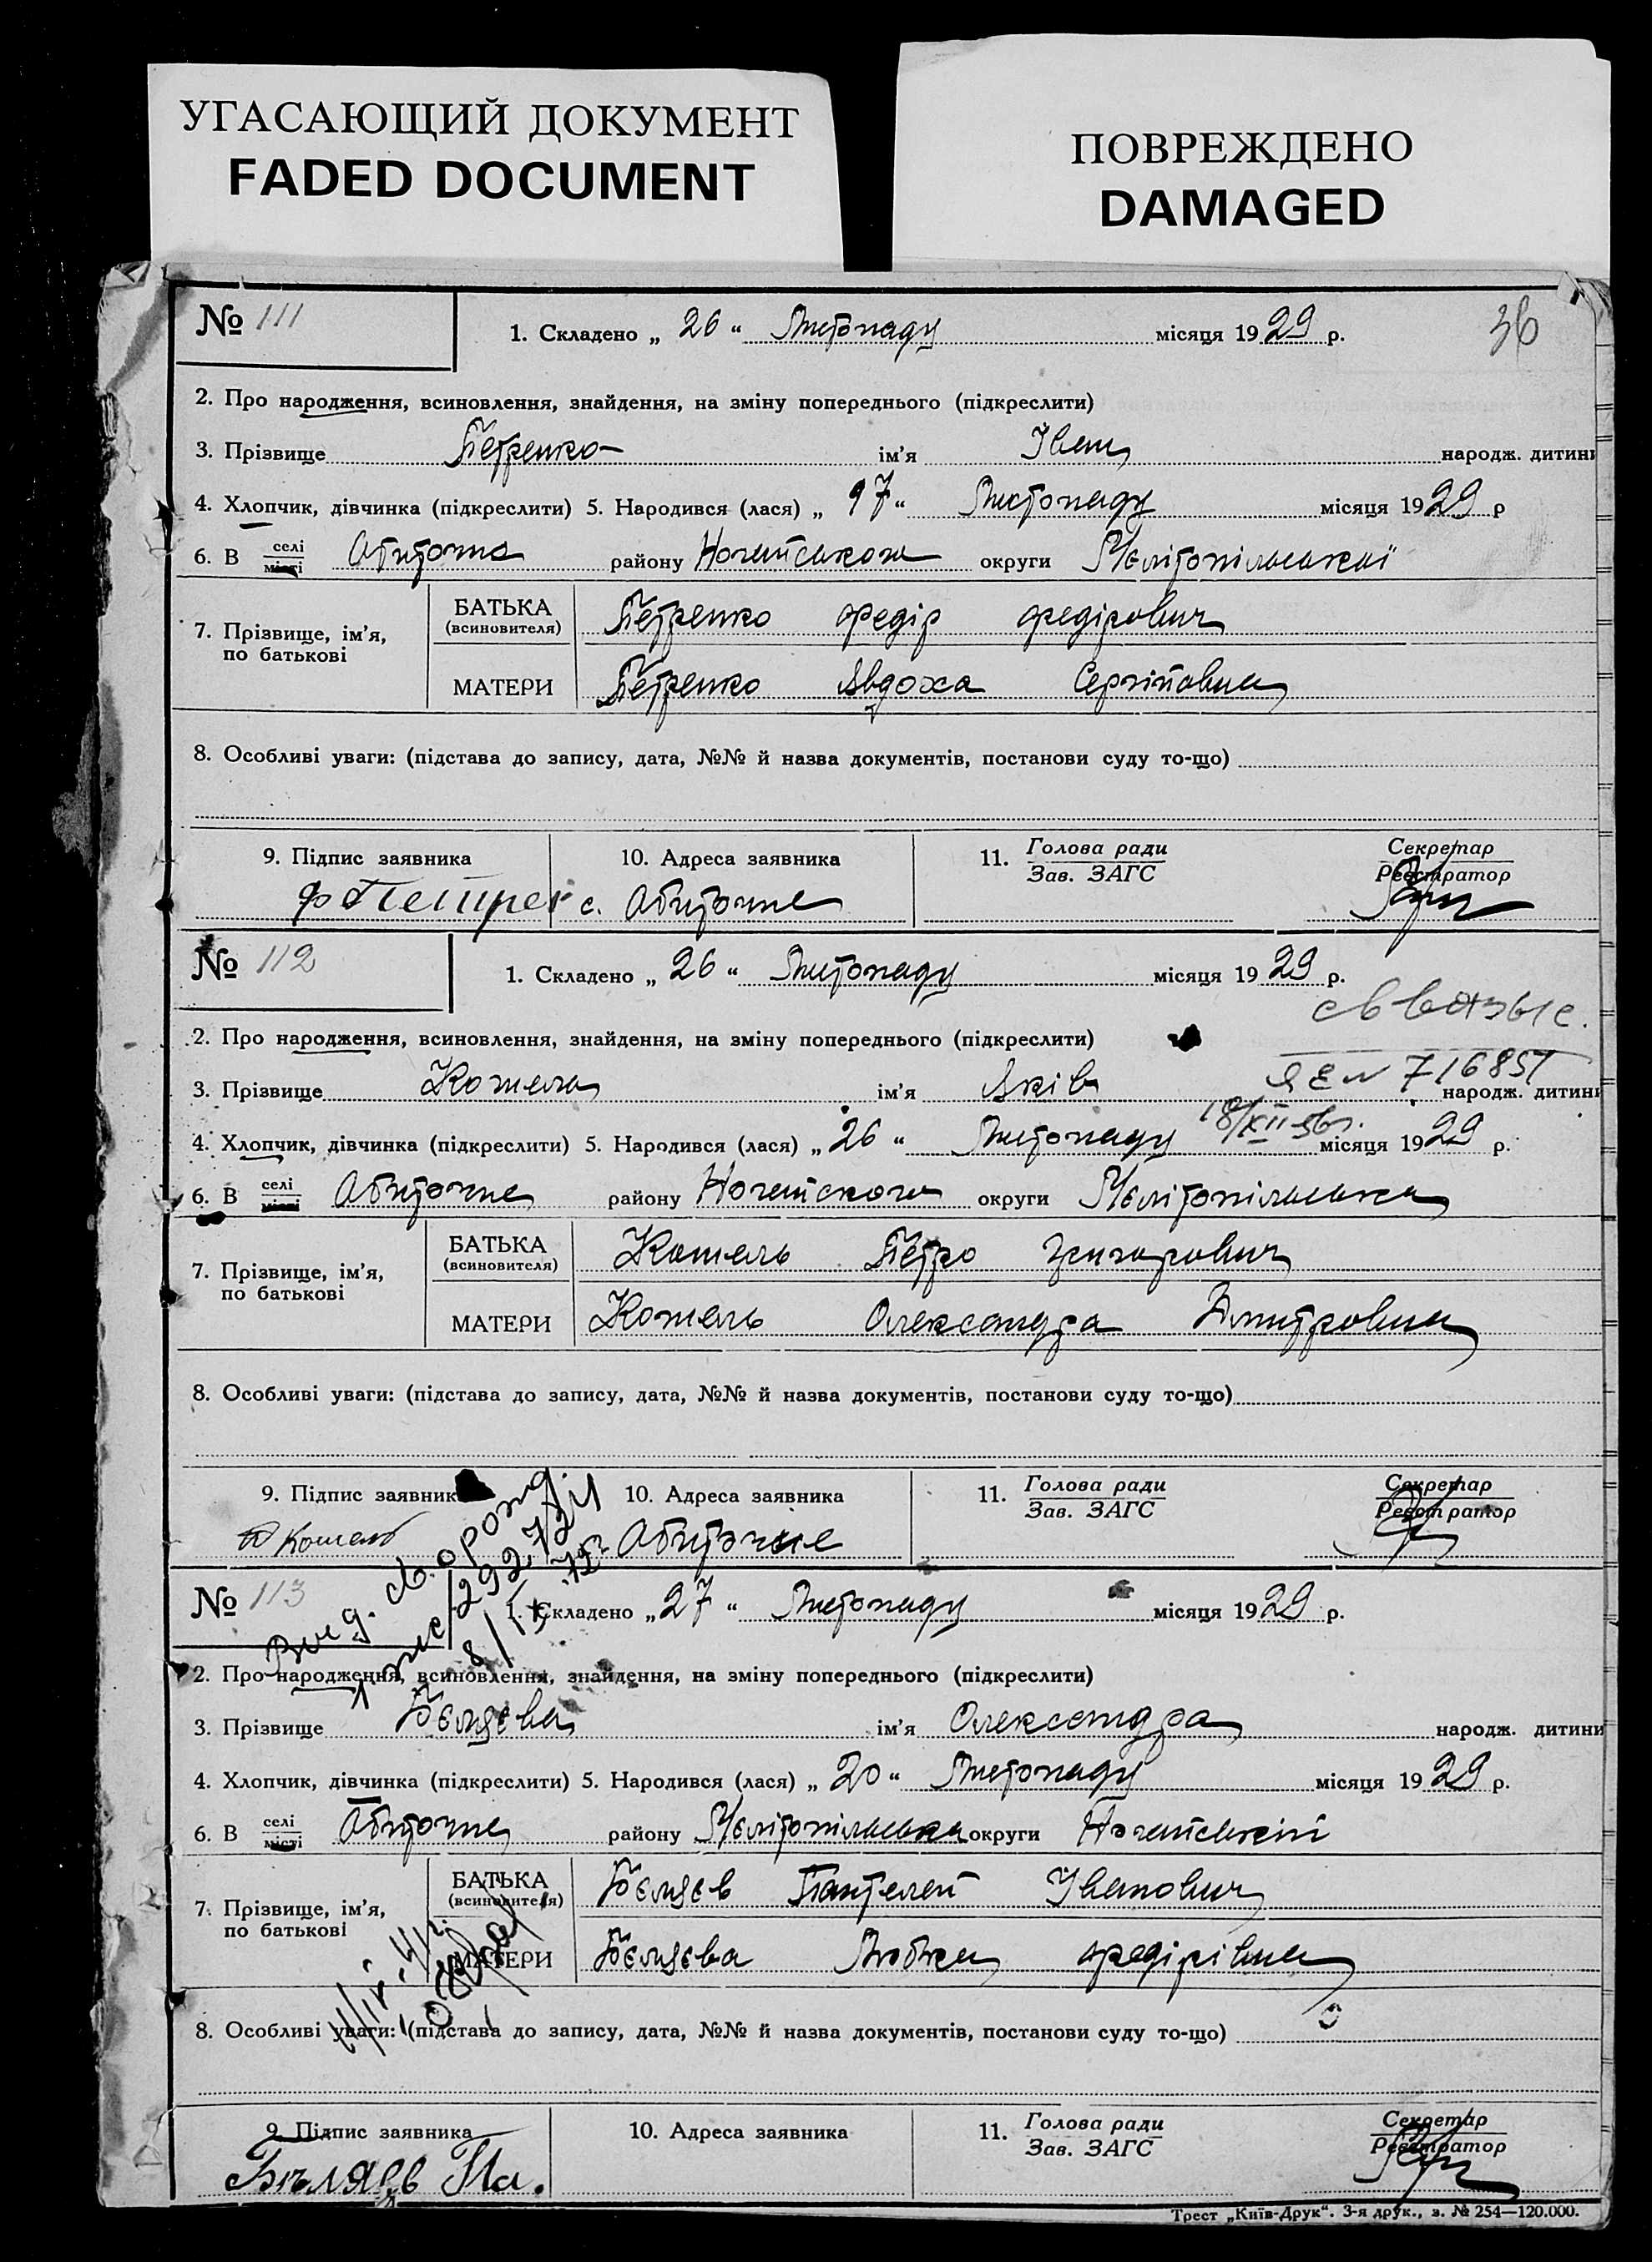 УГАСАЮЩИЙ ДОКУМЕНТ
FADED DOCUMENT
ПОВРЕЖДЕНО
DAMAGED
№ 111
1. Складено „ 26 “ Листопаду місяця 1929 р.
36
2. Про народження, всиновлення, знайдення, на зміну попереднього (підкреслити)
3. Прізвище Петренко ім'я Іван народж. дитини
4. Хлопчик, дівчинка (підкреслити) 5. Народився (лася) „ 17 “ Листопаду місяця 1929 р
6. В селі місті Обиточна району Ногайського округи Мелітопільської
7. Прізвище, ім'я, по батькові
БАТЬКА (всиновителя) Петренко Федір Федірович
МАТЕРИ Петренко Авдоха Сергіївна
8. Особливі уваги: (підстава до запису, дата, №№ й назва документів, постанови суду то-що)
9. Підпис заявника 10. Адреса заявника 11. Голова ради Зав. ЗАГС Секретар Реєстратор
с. Обиточне
№ 112
1. Складено „ 26 “ Листопаду місяця 1929 р.
2. Про народження, всиновлення, знайдення, на зміну попереднього (підкреслити)
3. Прізвище Кошель ім'я Яків народж. дитини
716851
4. Хлопчик, дівчинка (підкреслити) 5. Народився (лася) „ 26 “ Листопаду місяця 1929 р.
6. В селі місті Обиточне району Ногайского округи Мелітопільська
7. Прізвище, ім'я, по батькові
БАТЬКА (всиновителя) Кошель Петро Григорович
МАТЕРИ Кошель Олександра Дмитровна
8. Особливі уваги: (підстава до запису, дата, №№ й назва документів, постанови суду то-що)
9. Підпис заявника 10. Адреса заявника 11. Голова ради Зав. ЗАГС Секретар Реєстратор
Кошель Обиточне
№ 113
1. Складено „ 27 “ Листопаду місяця 1929 р.
2. Про народження, всиновлення, знайдення, на зміну попереднього (підкреслити)
3. Прізвище Бєляєва ім'я Олександра народж. дитини
4. Хлопчик, дівчинка (підкреслити) 5. Народився (лася) „ 20 “ Листопаду місяця 1929 р.
6. В селі місті Обиточне району Мелітопільська округи Ногайській
7. Прізвище, ім'я, по батькові
БАТЬКА (всиновителя) Бєляєв Пантелей Іванович
МАТЕРИ Бєляєва Любка Федірівна
8. Особливі уваги: (підстава до запису, дата, №№ й назва документів, постанови суду то-що)
9. Підпис заявника 10. Адреса заявника 11. Голова ради Зав. ЗАГС Секретар Реєстратор
Трест „Київ-Друк“. 3-я друк., з. № 254—120.000.